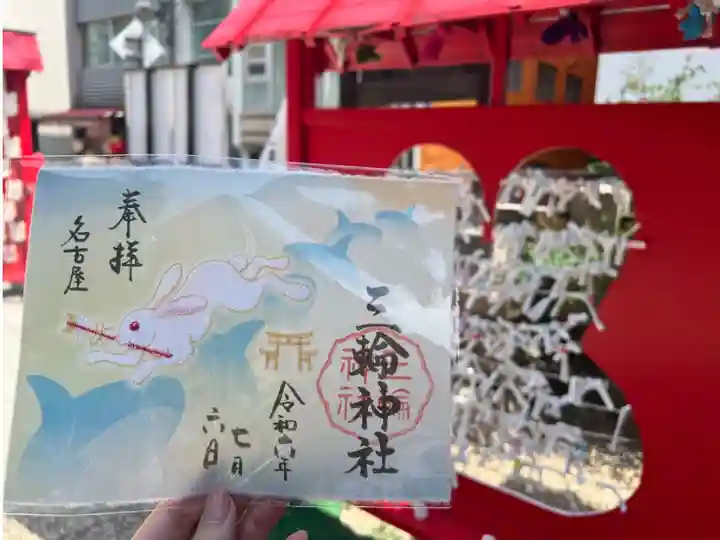 三輪神社
三輪
神社
令和六年
七月
六日
奉拝
名古屋